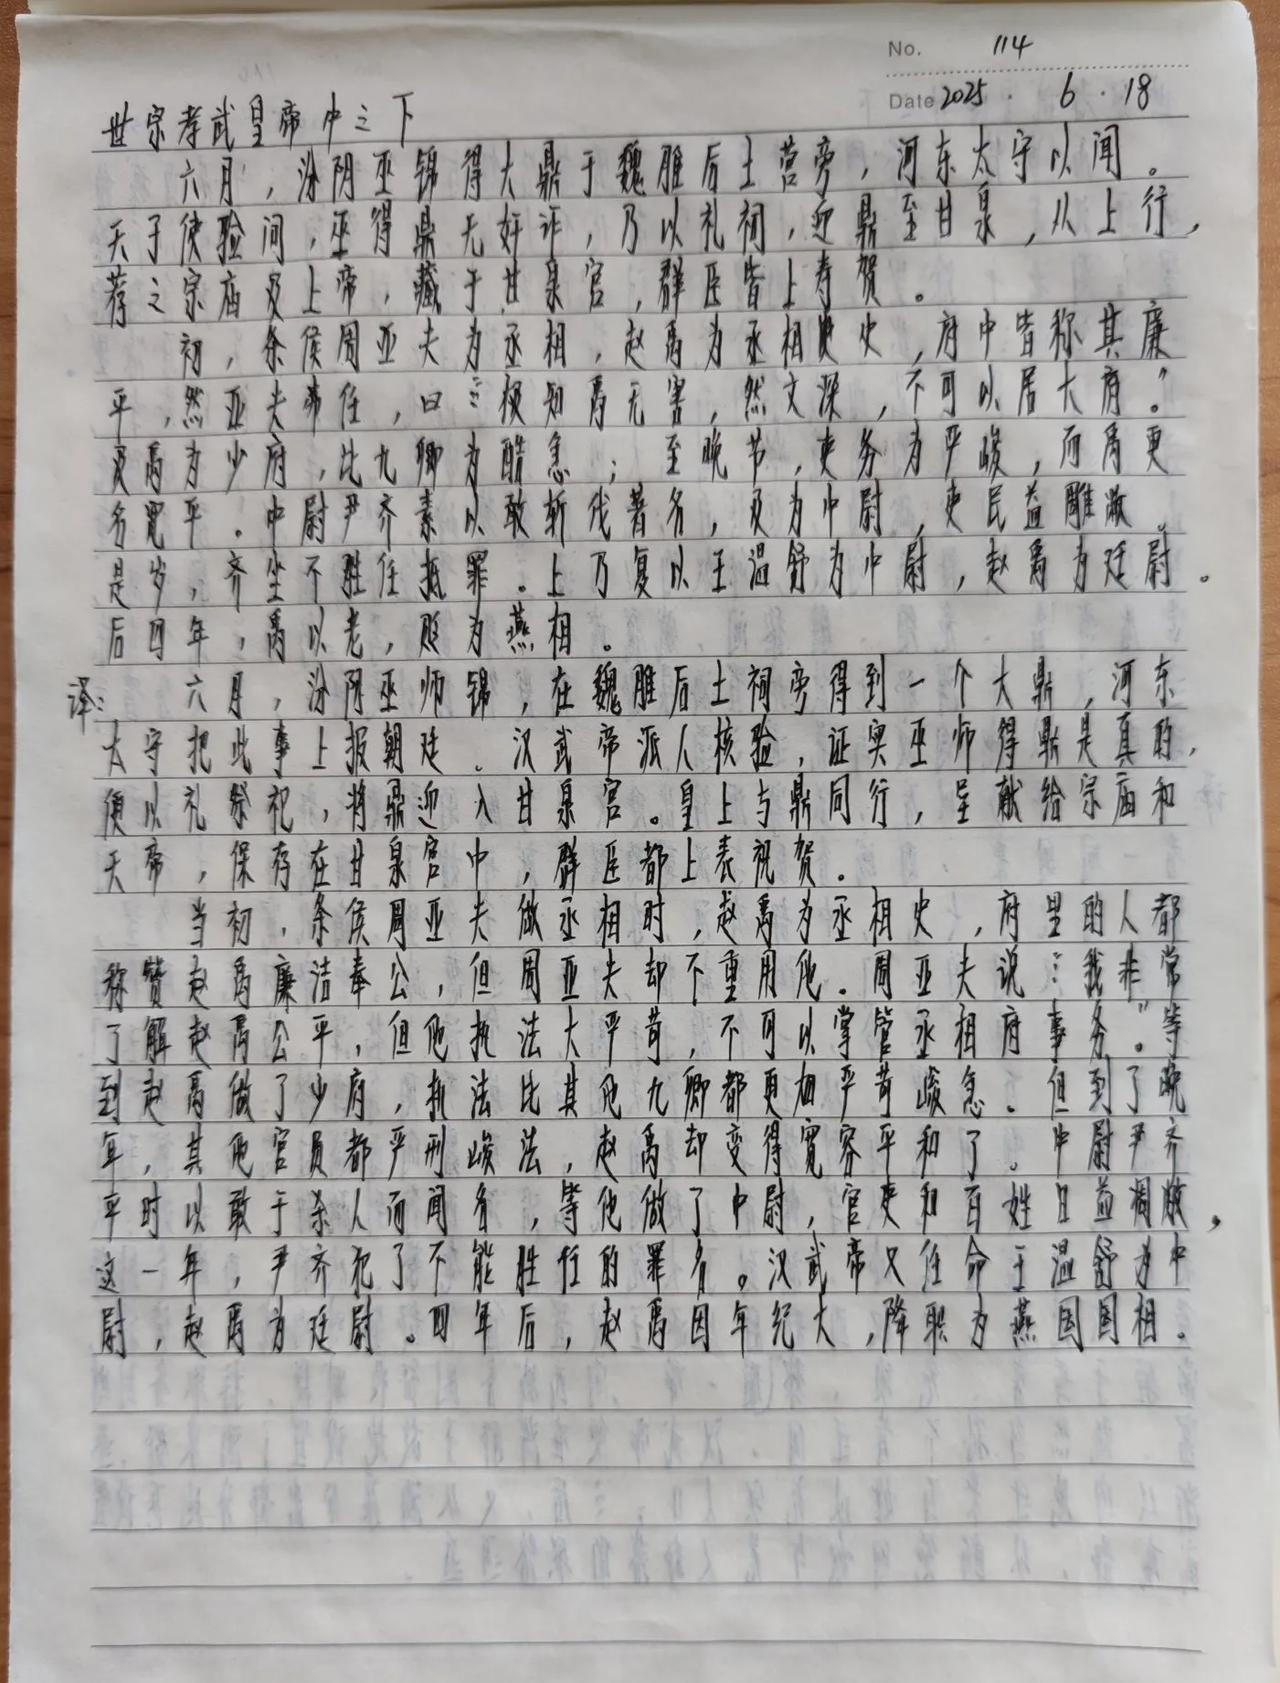 No. 114
Date 2025 · 6 · 18
世宗孝武皇帝中之下
六月，汾阴巫锦得大鼎于魏脽后土营旁，河东太守以闻。
天子使验问，巫得鼎无奸诈，乃以礼祠，迎鼎至甘泉，从上行，
荐之宗庙及上帝，藏于甘泉宫，群臣皆上寿贺。
初，条侯周亚夫为丞相，赵禹为丞相史，府中皆称其廉
平，然亚夫弗任，曰：“极知禹无害，然文深，不可以居大府。”
及禹为少府，比九卿为酷急；至晚节，吏务为严峻，而禹更
名宽平。中尉尹齐素以敢斩伐著名，及为中尉，吏民益雕敝。
是岁，齐坐不胜任抵罪。上乃复以王温舒为中尉，赵禹为廷尉。
后四年，禹以老，贬为燕相。
译：六月，汾阴巫师锦，在魏脽后土祠旁得到一个大鼎，河东
太守把此事上报朝廷。汉武帝派人核验，证实巫师得鼎是真的，
便以礼祭祀，将鼎迎入甘泉宫。皇上与鼎同行，呈献给宗庙和
天帝，保存在甘泉宫中，群臣都上表祝贺。
当初，条侯周亚夫做丞相时，赵禹为丞相史，府里的人都
称赞赵禹廉洁奉公，但周亚夫却不重用他。周亚夫说：“我非常
了解赵禹公平，但他执法大严苛，不可以掌管丞相府事务。”等
到赵禹做了少府，执法比其他九卿都更加严苛峻急。但到了晚
年，其他官员都严刑峻法，赵禹却变得宽容平和了。中尉尹齐
平时以敢于杀人而闻名，等他做了中尉，官吏和百姓日益凋敝，
这一年，尹齐犯了不能胜任的罪名。汉武帝又任命王温舒为中
尉，赵禹为廷尉。四年后，赵禹因年纪大，降职为燕国国相。